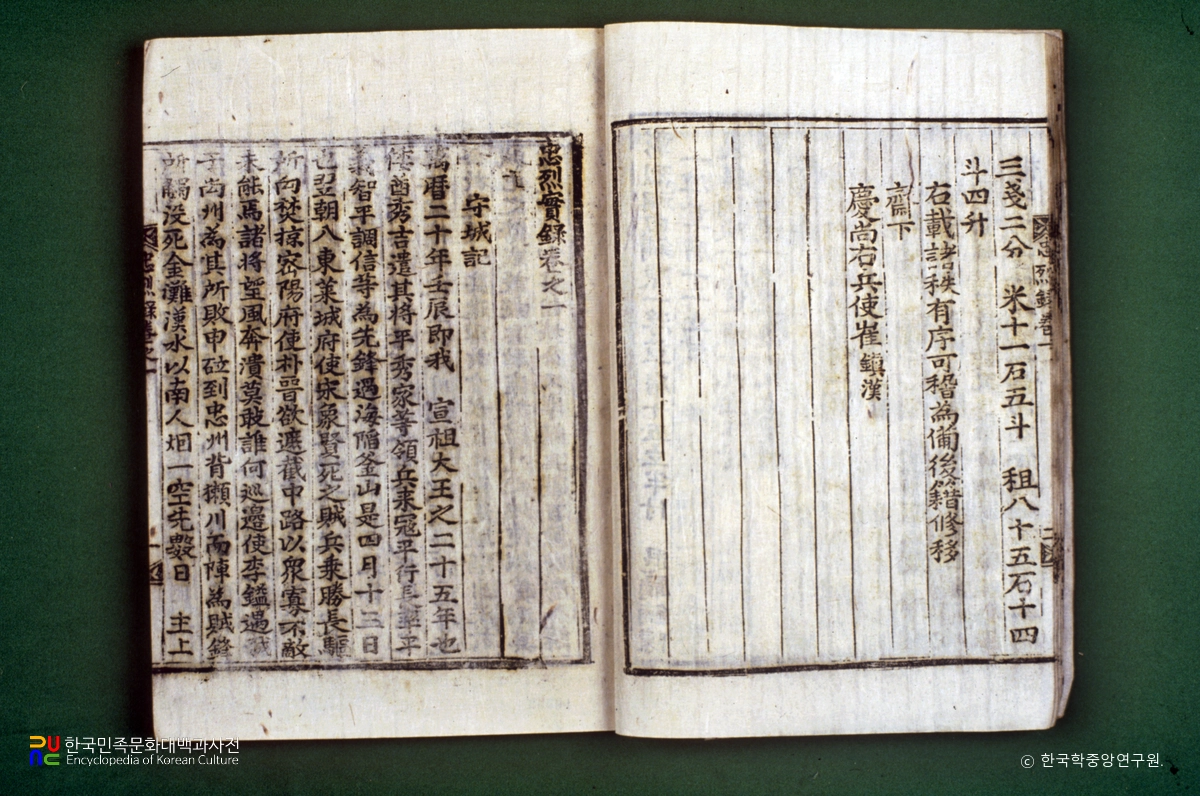 三戔二分 米十一石五斗 租八十五石十四
斗四升
右載諸秩有序可稽為備後錯修移
齋下
慶尚右兵使崔鎮漢
忠烈實錄卷之一
守城記
萬曆二十年壬辰即我 宣祖大王之二十五年也
倭酋秀吉遣其將平秀家等領兵来寇平行長率平
義智平調信等為先鋒過海陷釜山是四月十三日
也翌朝入東萊城府使宋象賢死之賊兵乘勝長驅
所向焚掠密陽府使朴晉欲遮截中路以衆寡不敵
未能焉諸将望風奔潰莫敢誰何巡邊使李鎰遇賊
于尙州為其所敗申砬到忠州背㺚川而陣為賊鋒
所觸没死金灘漢水以南人烟一空先數日 主上
忠烈錄卷一
忠烈錄卷之一
한국민족문화대백과사전
Encyclopedia of Korean Culture
ⓒ 한국학중앙연구원.